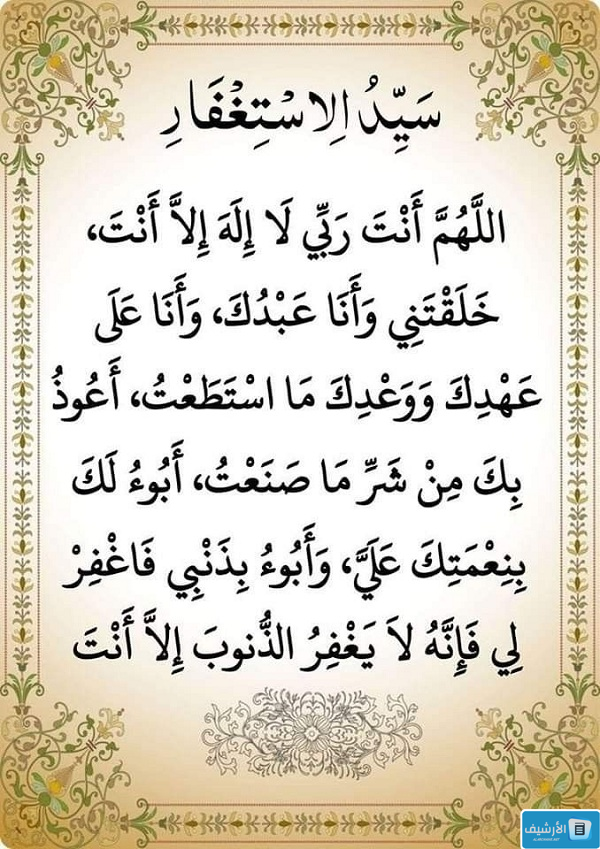 سَيِّدُ الِاسْتِغْفَارِ
اللَّهُمَّ أَنْتَ رَبِّي لَا إِلَهَ إِلاَّ أَنْتَ،
خَلَقْتَنِي وَأَنَا عَبْدُكَ، وَأَنَا عَلَى
عَهْدِكَ وَوَعْدِكَ مَا اسْتَطَعْتُ، أَعُوذُ
بِكَ مِنْ شَرِّ مَا صَنَعْتُ، أَبُوءُ لَكَ
بِنِعْمَتِكَ عَلَيَّ، وَأَبُوءُ بِذَنْبِي فَاغْفِرْ
لِي فَإِنَّهُ لاَ يَغْفِرُ الذُّنوبَ إِلاَّ أَنْتَ
الأرشيف